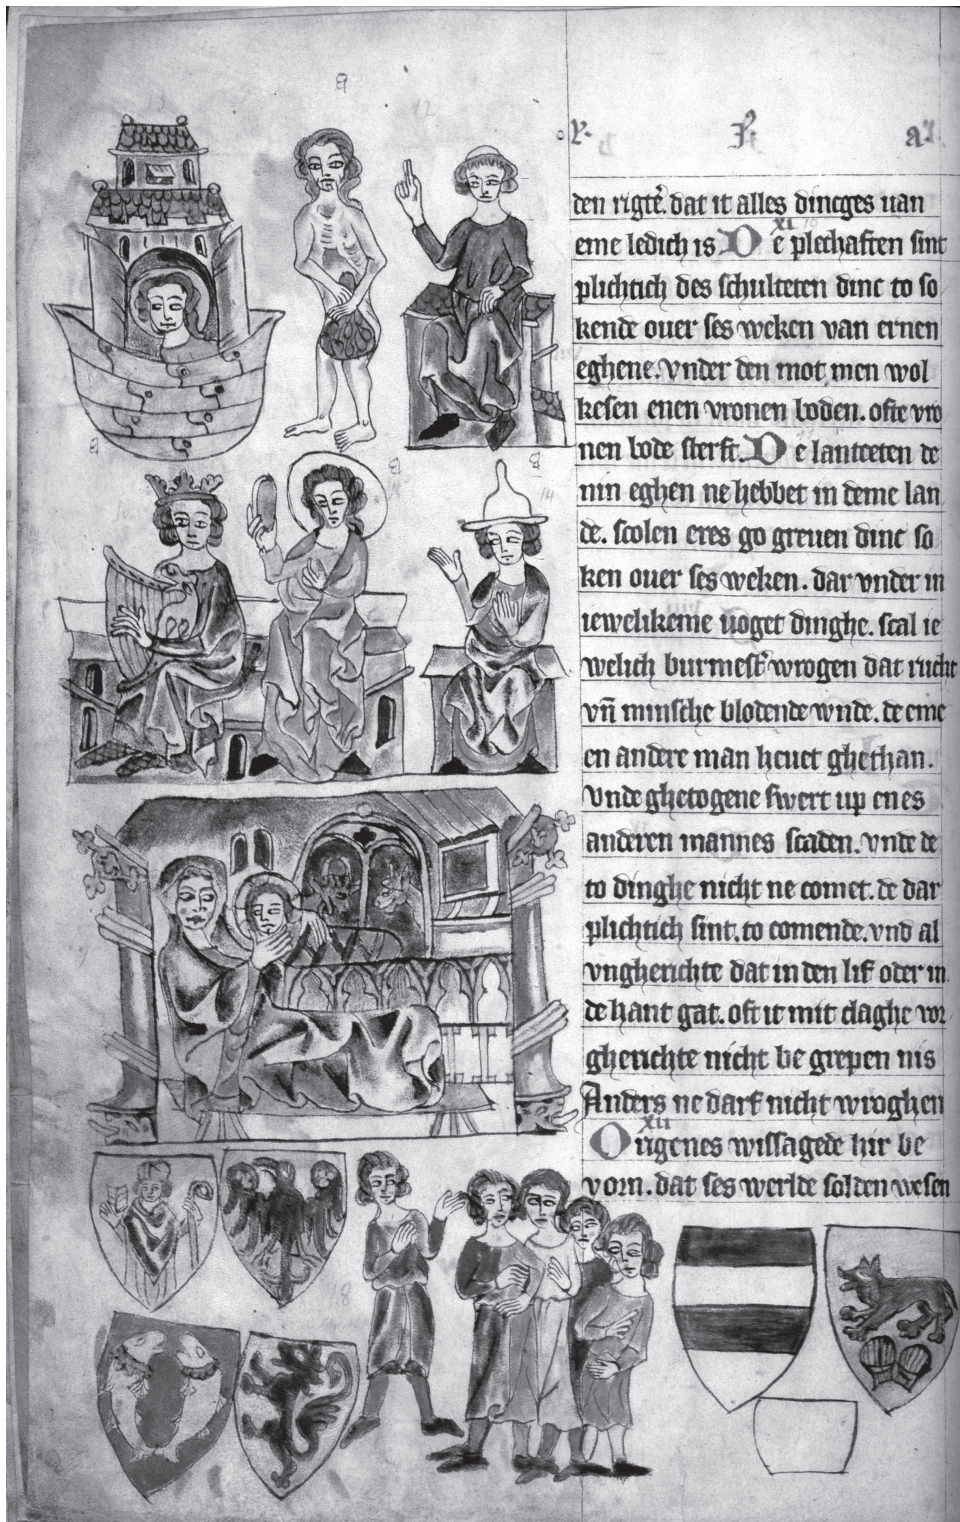 den rigte͛. dat it alles dincges uan
eme ledich is D xi e plechaften sint
plichtich des schulteten dinc to so
kende ouer ses weken van ernen
eghene. vnder den mot men wol
kesen enen vronen boden. ofte vro
nen bode sterft. D e lantceten de
nin eghen ne hebbet in deme lan
de. scolen eres go greuen dinc so
ken ouer ses weken. dar vnder in
iewelikeme uoget dinghe. scal ie
welich burmest͛ wrogen dat rucht
vn̄ minsche blodende wnde. de eme
en andere man heuet ghethan.
vnde ghetogene swert up enes
anderen mannes scaden. vnde de
to dinghe nicht ne comet. de dar
plichtich sint. to comende. vnd al
vngherichte dat in den lif oder in
de hant gat. oft it mit claghe vor
gherichte nicht be grepen nis
Anders ne darf nicht wroghen
xii
Origenes wissagede hir be
vorn. dat ses werlde solden wesen